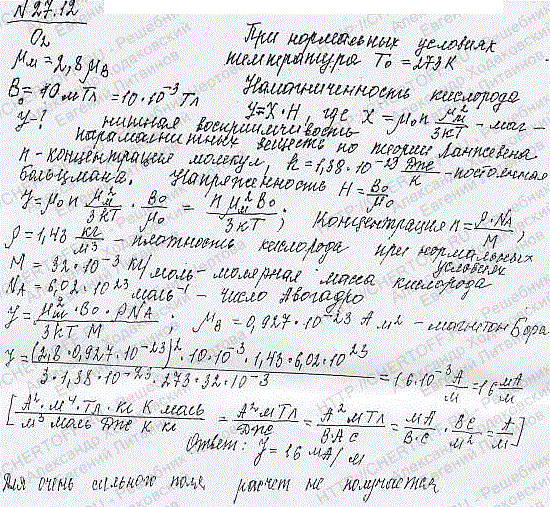 N 27.12
O₂
μм = 2,8 μB
B₀ = 10 мТл = 10·10⁻³ Тл
J - ?
При нормальных условиях
температура T₀ = 273 К
Намагниченность кислорода
J = χ·H, где χ = μ₀ n μм²/3kT - маг-
нитная восприимчивость
парамагнитных веществ по теории Ланжевена
n - концентрация молекул, k = 1,38·10⁻²³ Дж/К - постоянная
больцмана. Напряженность H = B₀/μ₀
J = μ₀ n μм²/3kT · B₀/μ₀ = n μм² B₀/3kT; Концентрация n = ρ·NA/M
ρ = 1,43 кг/м³ - плотность кислорода при нормальных условиях
M = 32·10⁻³ кг/моль - молярная масса кислорода
NA = 6,02·10²³ моль⁻¹ - число Авогадро
J = μм²·B₀·ρNA/3kT M; μB = 0,927·10⁻²³ А м² - магнитон Бора
J = (2,8·0,927·10⁻²³)²·10·10⁻³·1,43·6,02·10²³/3·1,38·10⁻²³·273·32·10⁻³ = 16·10⁻³ А/м = 16 мА/м
[А²·м⁴·Тл·кг К моль/м³ моль Дж К кг = А²мТл/Дж = А²мТл/ВАс = мА/В·с · Вс/м² = А/м]
Ответ: J = 16 мА/м
Для очень сильного поля расчет не получается